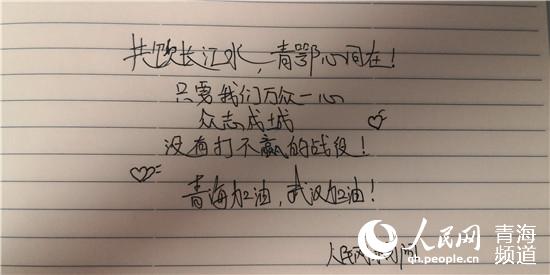 共饮长江水，青鄂心同在！
只要我们万众一心
众志成城
没有打不赢的战役！
青海加油，武汉加油！
人民网
人民网 青海频道
qh.people.cn